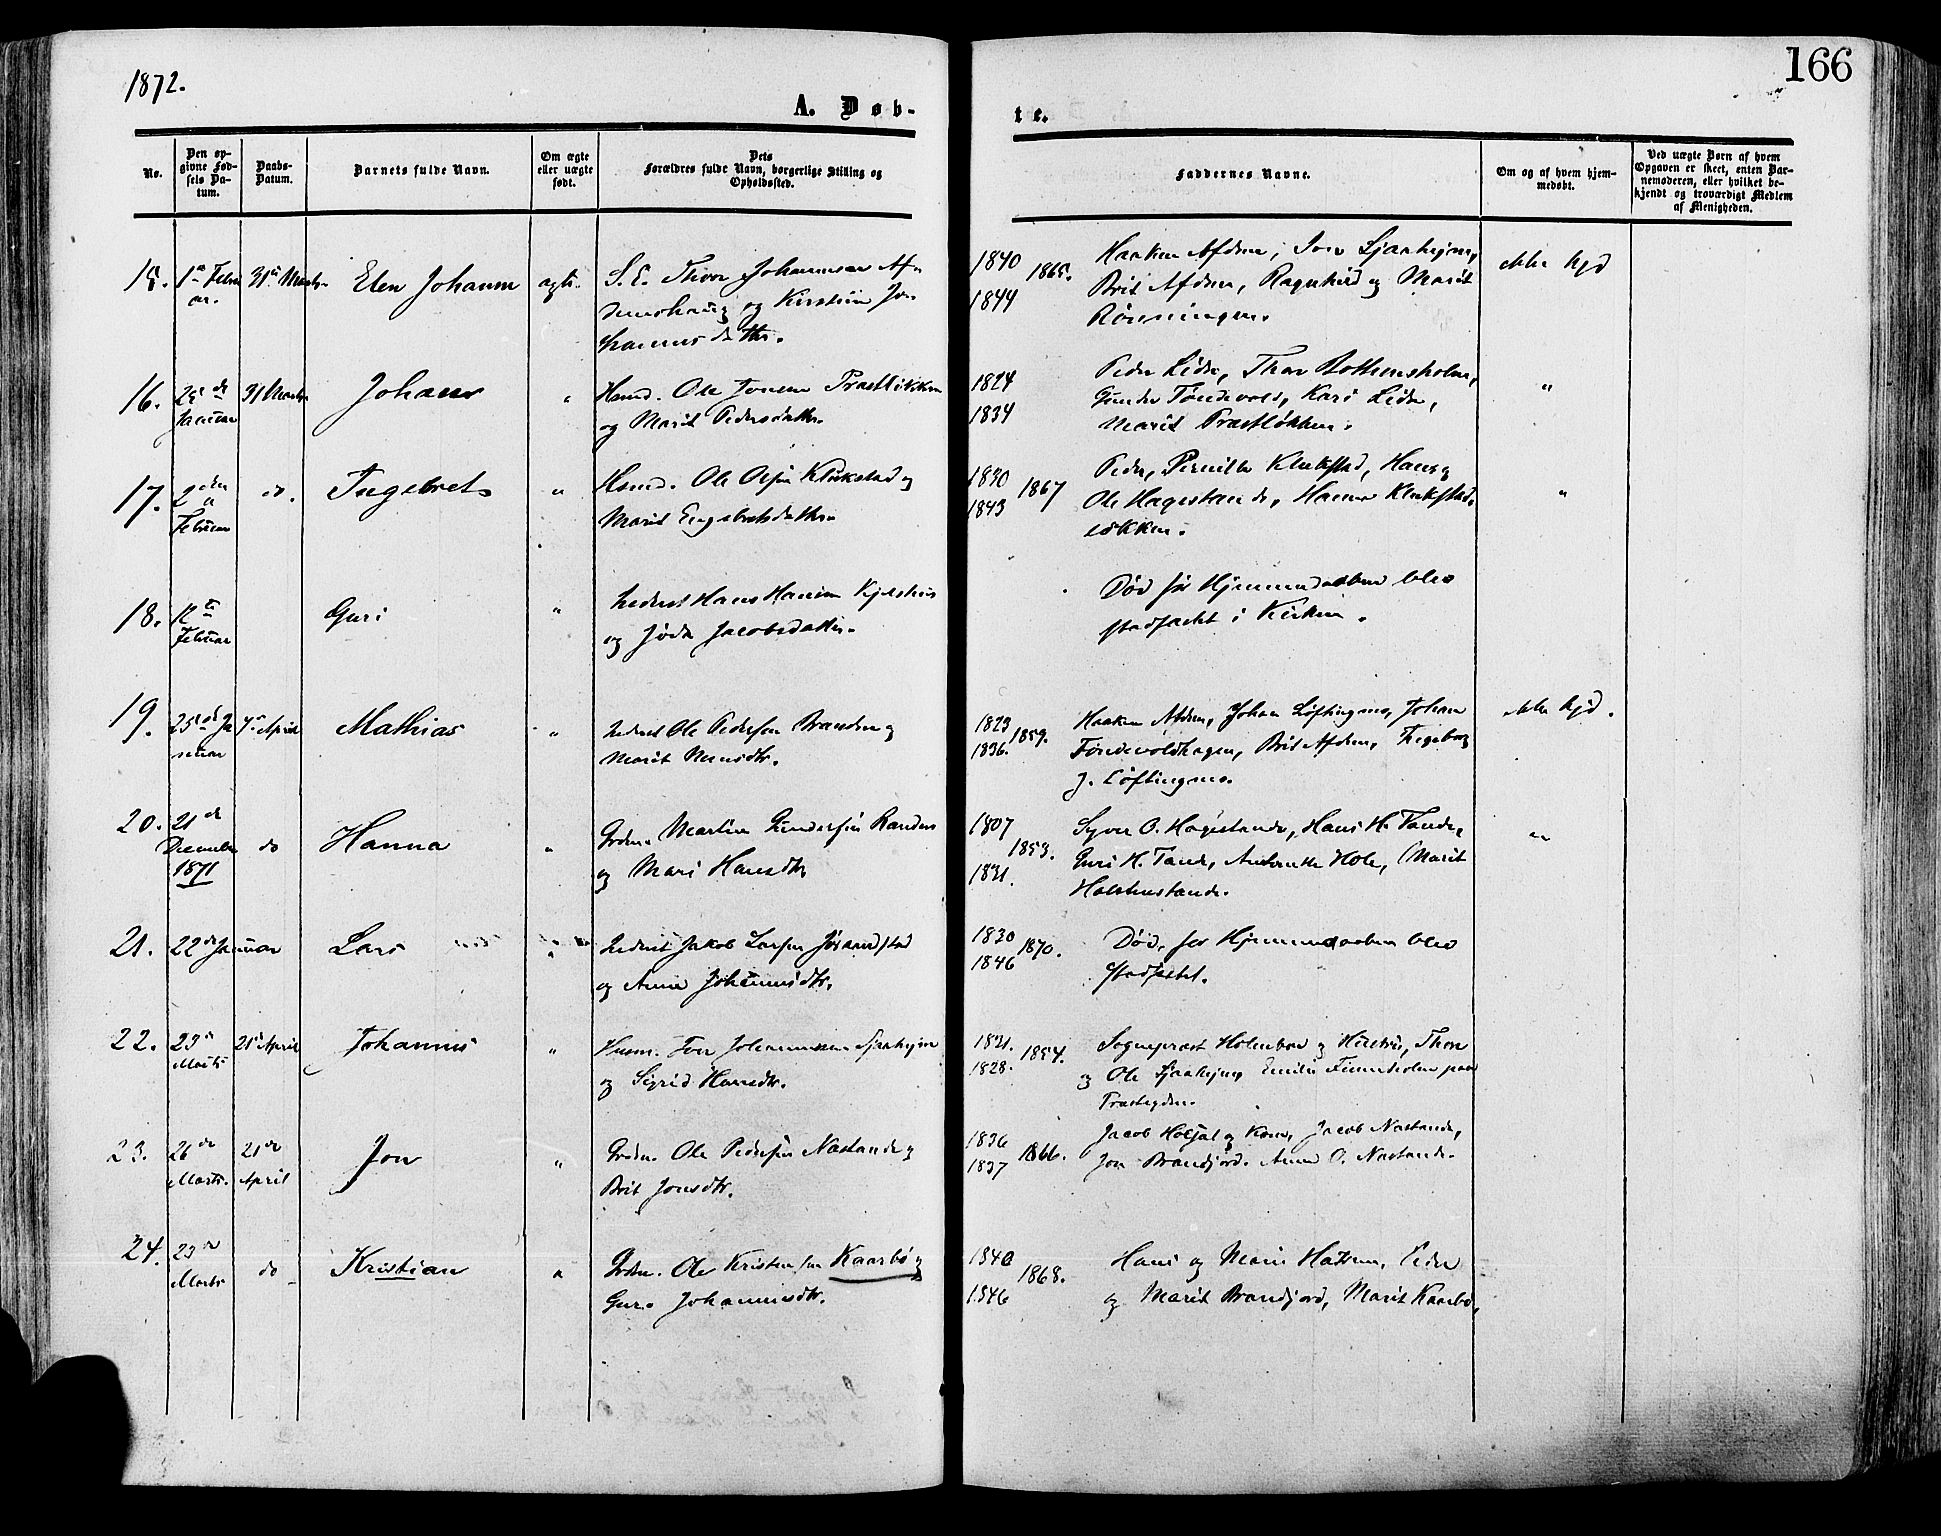 1872.
166
A. Døb-
te.
No.
Den op-
givne Fød-
sels Da-
tum.
Daabs-
Datum.
Barnets fulde Navn.
Om ægte
eller uægte
født.
Dets
Forældres fulde Navn, borgerlige Stilling og
Opholdssted.
Faddernes Navne.
Om og af hvem hjem-
medøbt.
Ved uægte Børn af hvem
Opgaven er skeet, enten Bar-
nemoderen, eller hvilket be-
kjendt og troværdigt Medlem
af Menigheden.
15.
31te Marts
Elen Johanne
ægte.
og Kirstine Jo-
hannesdatter.
1840
1844
1865.
Brit Afdem, Ragnhild og Marit
Rönningen.
ikke hjd
16.
25de
Januar
31 Marts
Johans
"
Husmd. Ole Jonsen Præstløkken
og Marit Pedersdatter.
1824
1834
Gunder Töndevold, Kari Lidn,
Marit Præstløkken.
"
17.
2den
Februar
do.
Ingebret
"
Husmd. Ole Olsen Klukstad og
Marit Engebretsdatter
1830
1843
1867
Peder, Pernille Klukstad, Hans og
Ole Hagestande, Hanna Klukstad-
løkken.
"
18.
12te
Februar
Guri
"
Inderst Hans Hansen
og Jøda Jacobsdatter.
Död før Hjemmedaaben blev
stadfæstet i Kirken.
19.
25de Ja
nuar
7de April
Mathias
"
Inderst Ole Pedersen Branden og
Marit
1823
1836.
1859.
Haaken Afdem, Johan Løftingsmo, Johan
Töndevoldhagen, Brit Afdem, Ingeborg
J. Løftingsmo.
ikke hjd.
20.
21de
December
1871
do
Hanna
"
Grdm. Martin Gundersen Randen
og Mari Hansdtr
1807
1831.
1853.
Syver O. Hagestande, Hans H. Tande,
Guri H. Tande, Hole, Marit
Holstenstande.
"
21.
22de Januar
Lars
"
Inderst Jakob Larsen Jöraandstad
og Anne Johannesdtr.
1830
1846
1870.
Död, før Hjemmedaaben blev
stadfæstet.
22.
23de
Marts
21de April
Johannes
"
Husm. Iver Johannessen Sjaahejm
og Sigrid Hansdtr.
1821.
1828.
1854.
Sognepræst Holmboe og Hustru, Thor
og Ole Sjaahejm, Emilie Finneholm paa
23.
26de
Marts.
21de
April
Jon
"
Grdm. Ole Pedersen Nastande og
Brit Jonsdtr.
1836
1837
1866.
Jacob Holsæt og Kone, Jacob Nastande,
Jon Brandjord. Anne O. Nastande.
24.
23de
Marts
do
Kristian
"
Grdm. Ole Kristensen Kaarbö og
Guro Johannesdtr.
1840
1846
1868.
Hans og Marie Hattrem, Peder
og Marit Brandjord, Marit Kaarbö,